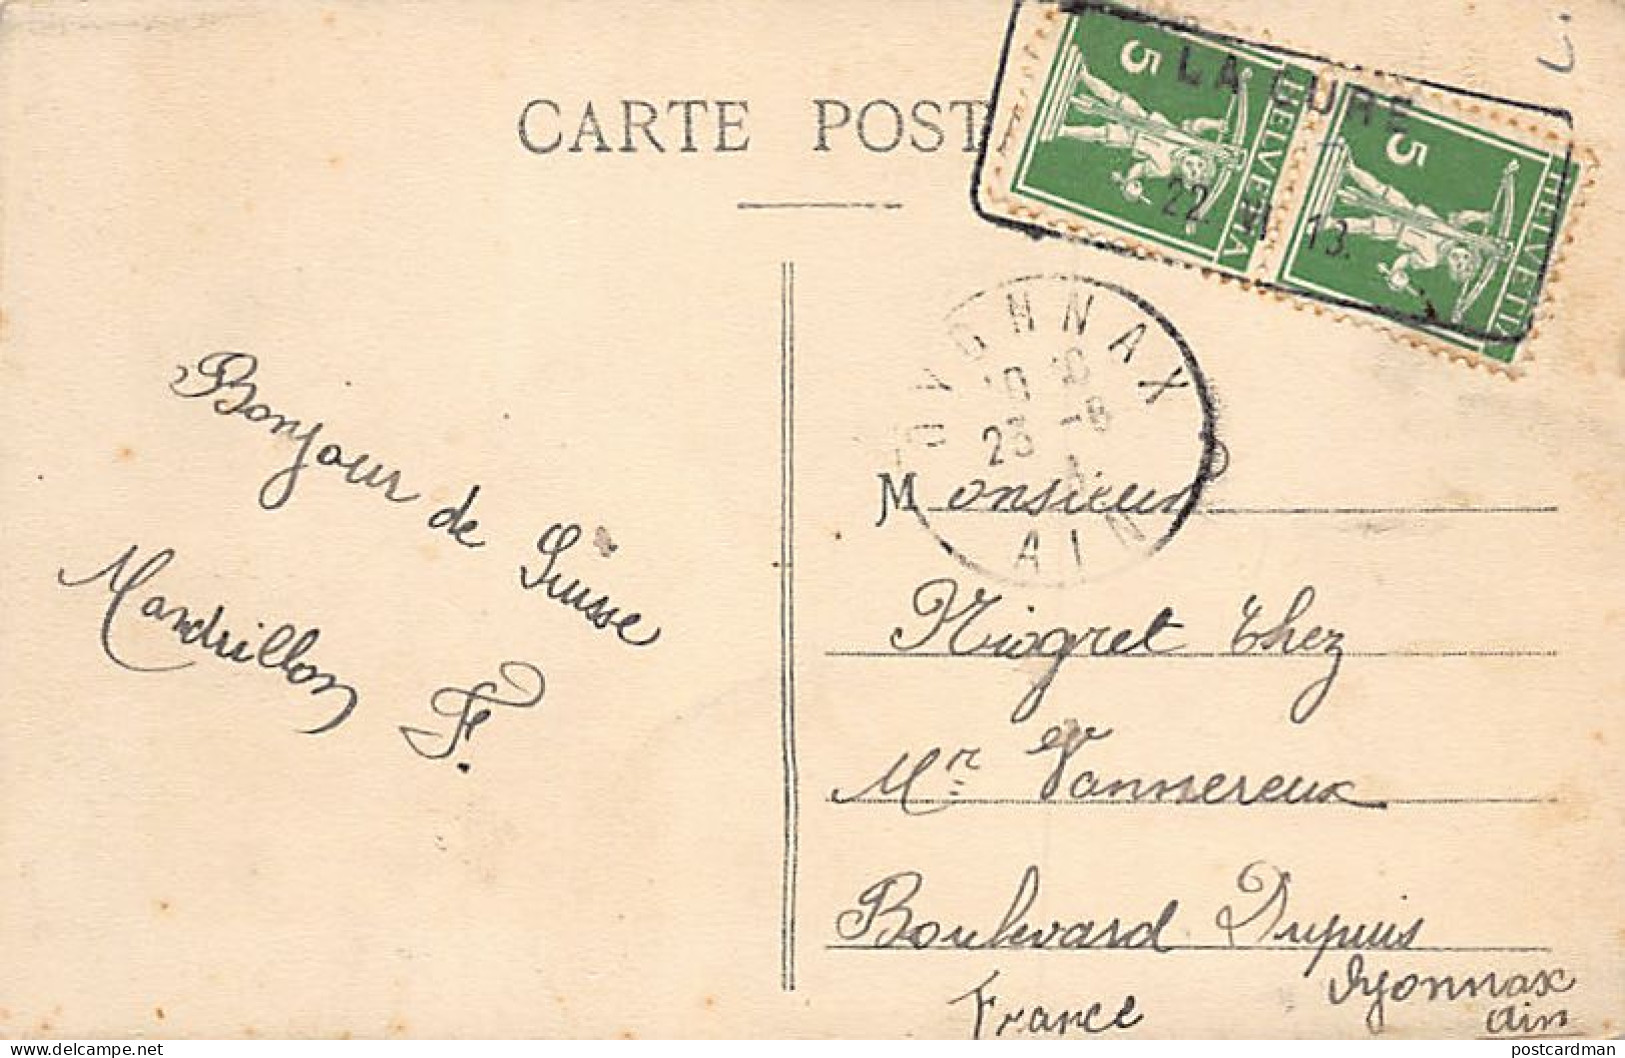 CARTE POSTA
5 HELVETIA
5 HELVETIA
LA CURE
22. VI 13.
OYONNAX
10 30
23 -6
AIN
Bonjour de Suisse
Mandrillon
F.
Monsieur
Niogret Chez
Mr. Vannereux
Boulevard Dupuis
Oyonnax
Ain
France
postcardman